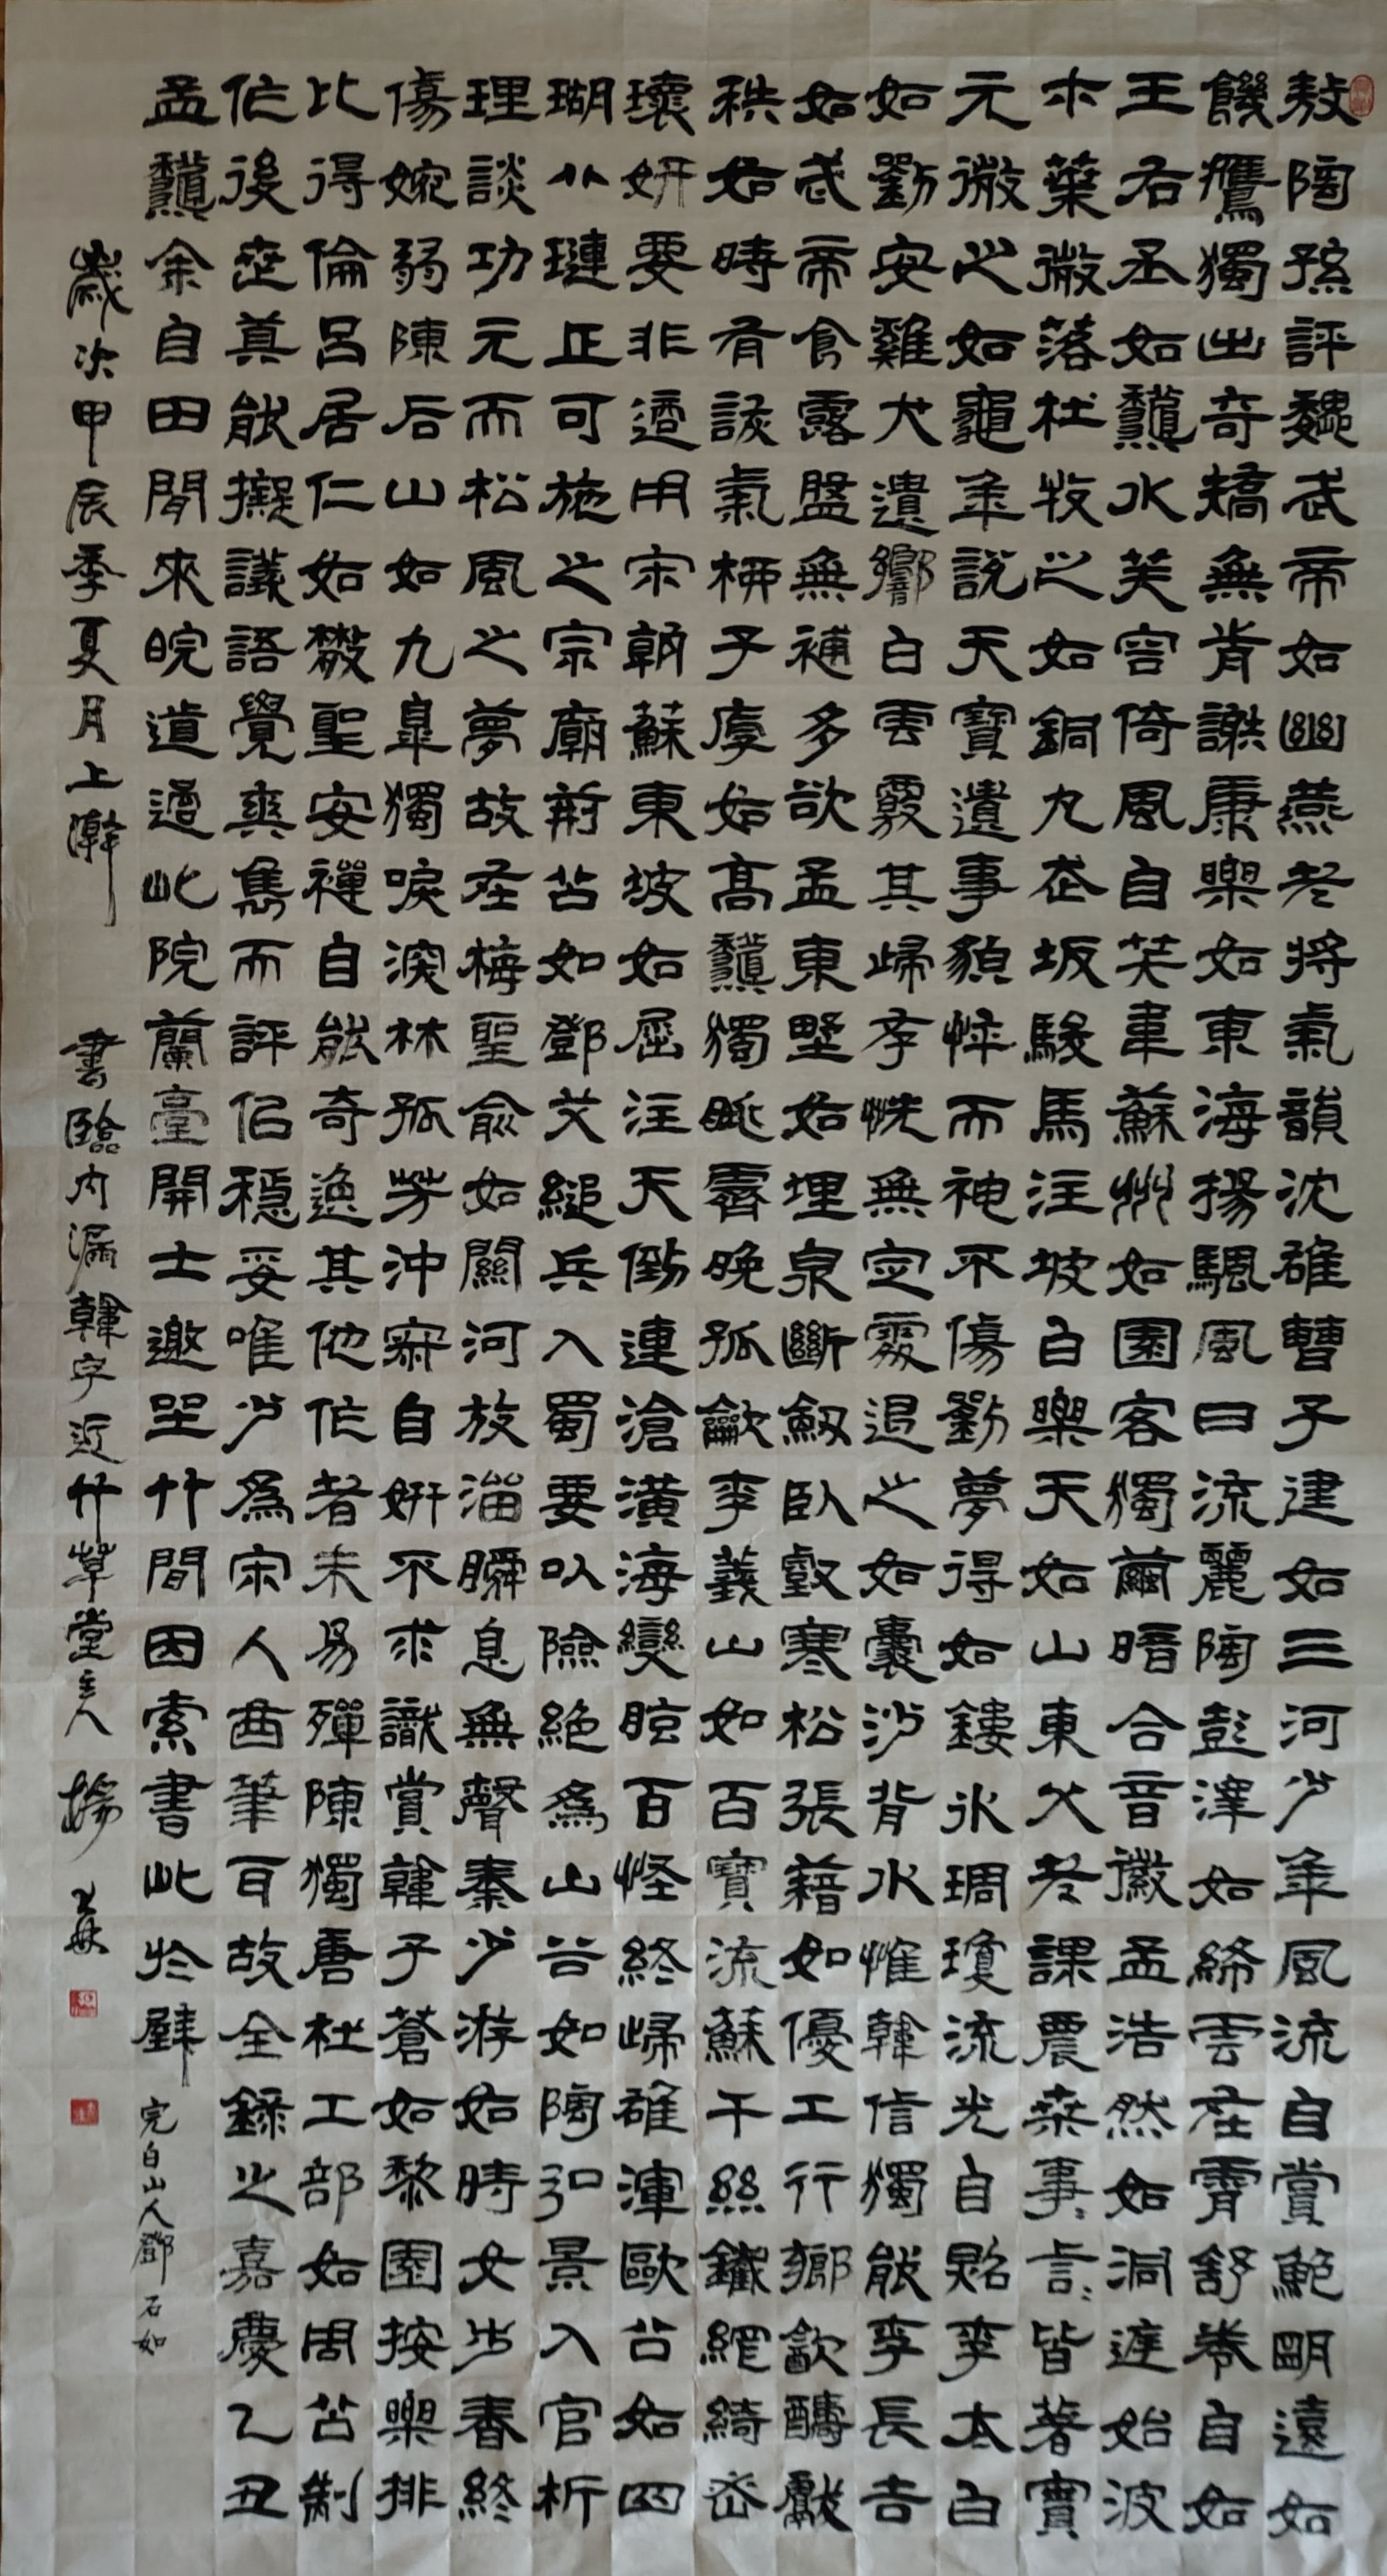 敖陶孫評魏武帝如幽燕老將氣韻沈雄曹子建如三河少年風流自賞鮑明遠如
饑鷹獨出奇矯無肯謝康樂如東海揚颿風日流麗陶彭澤如絳雲在霄舒卷自如
王右丞如龝水芙容倚風自笑韋蘇州如園客獨繭暗合音徽孟浩然如洞庭始波
木葉微落杜牧之如銅丸走坂駿馬注坡白樂天如山東父老課農桑事〻言〻皆著實
元微之如龜年說天寶遺事貌悴而神不傷劉夢得如鏤冰琱瓊流光自照李太白
如劉安雞犬遺響白雲覈其歸存恍無定處退之如囊沙背水惟韓信獨能李長吉
如武帝食露盤無補多欲孟東野如埋泉斷劍臥壑寒松張藉如優工行鄉飲醻獻
秩如時有詼氣柳子厚如高龝獨眺霽晚孤歙李義山如百寶流蘇千絲鐵網綺密
瓌妍要非適用宋朝蘇東坡如屈注天倒連滄潢海變眩百怪終歸雄渾歐公如四
瑚八璉正可施之宗廟荊公如鄧艾縋兵入蜀要以險絕為山谷如陶弘景入官析
理談功元而松風之夢故在梅聖俞如關河放淄瞬息無聲秦少游如時女步春終
傷婉弱陳后山如九皋獨唳深林孤芳沖寂自妍不求識賞韓子蒼如黎園按樂排
比得倫呂居仁如散聖安禪自能奇逸其他作者未易殫陳獨唐杜工部如周公制
作後世莫能擬議語覺爽雋而評似穩妥唯少為宋人曲筆耳故全錄之嘉慶乙丑
孟龝余自田間來皖道過此院蘭臺開士邀坐竹間因索書此於壁 完白山人鄧石如
歲次甲辰季夏月上澣 書臨內漏韓字近竹草堂主人 楊